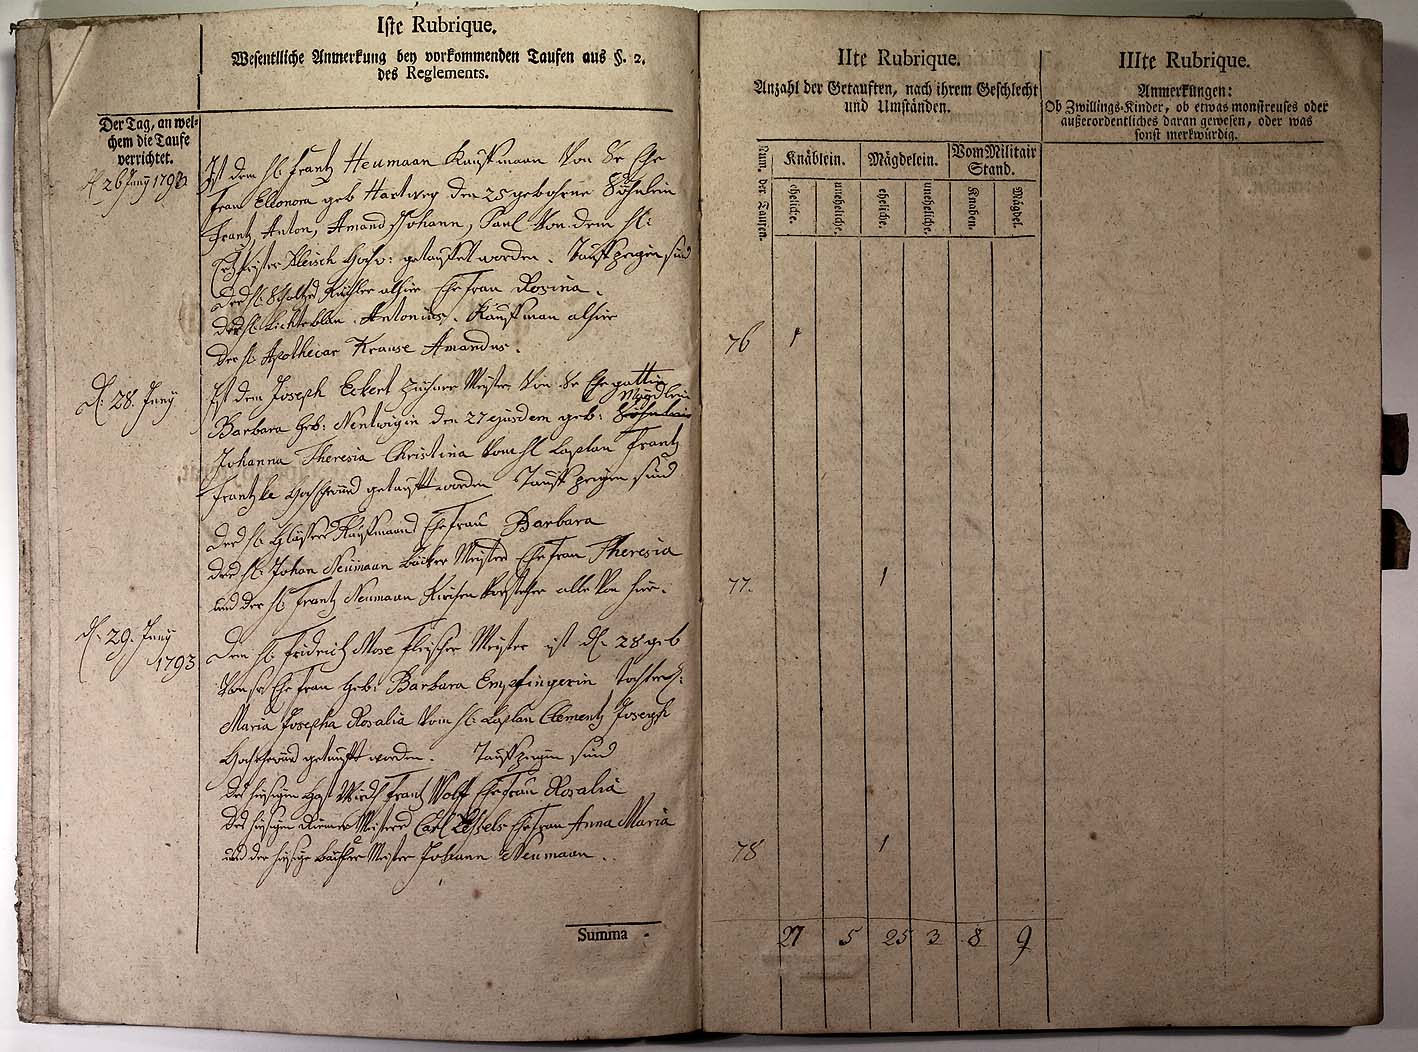 Iste Rubrique.
Wesentlliche Anmerkung bey vorkommenden Taufen aus §. 2.
des Reglements.
Der Tag, an wel-
chem die Taufe
verrichtet.
d 26 Junÿ 1793
Ist dem H. Frantz Heumaan Kauffmaan Von der Ehe
Frau Elleonora geb Hartweg den 25 gebohrne Söhnlein
Frantz, Anton, Amand Johann, Paul Von dem H:
getaufft worden. Tauffzeigen sind
Ehe Frau Rosina.
Antonius. Kauffman alhier
Der H. Apothecar Krause Amandus.
d. 28. Junÿ
Ist dem Joseph Eckert Züchner Meister Von der Ehegattin
Mägdlein
Barbara geb: Nentwigin den 27 ejusdem geb: Söhnlein
Johanna Theresia Christina Vom H Caplan Frantz
Frantzke getaufft worden Tauff zeigen sind
Ehe Frau Barbara
des H. Johan Neumaan Bäcker Meister Ehe Frau Theresia
und der H. Frantz Neumaan Kirchen Vorsteher alle Von hier.
d. 29. Junÿ
1793
Dem H. Fridrich Mose Fleischer Meister ist d. 28 geb
Von der Ehe Frau geb: Barbara Empfingerin
Maria Josepha Rosalia Vom H. Caplan Clementz Joseph
getaufft worden. Tauffzeigen sind
Frantz Wolff Ehe Frau Rosalia
Carl Ehe Frau Anna Maria
und der hiesige Meister Johann Neumaan.
Summa
IIte Rubrique.
Anzahl der Getauften, nach ihrem Geschlecht
und Umständen.
Num. der Taufen.
Knäblein. Mägdelein. Vom Militair
Stand.
eheliche. uneheliche. eheliche. uneheliche. Knaben. Mägdel.
76 1
77. 1
78 1
27 5 25 3 8 9
IIIte Rubrique.
Anmerkungen:
Ob Zwillings-Kinder, ob etwas monstreuses oder
außerordentliches daran gewesen, oder was
sonst merkwürdig.